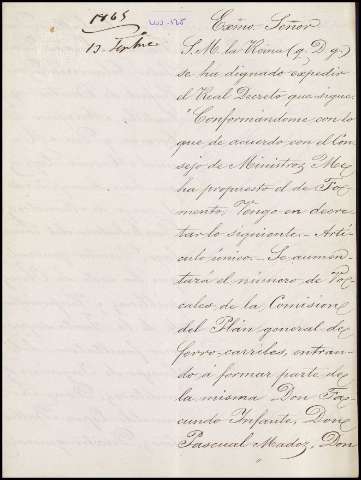 1865
13. Septbre
Exmo. Señor
S. M. la Reina (q. D. g.)
se ha dignado expedir
el Real Decreto que sigue:
"Conformandome con lo
que de acuerdo con el Con-
sejo de Ministros, Me
ha propuesto el de Fo-
mento, Vengo en decre-
tar lo siguiente.- Arti-
culo único.- Se aumen-
tará el número de Vo-
cales de la Comision
del Plán general de
ferro-carriles, entran-
do á formar parte de
la misma Don Fa-
cundo Infante, Don
Pascual Madoz, Don